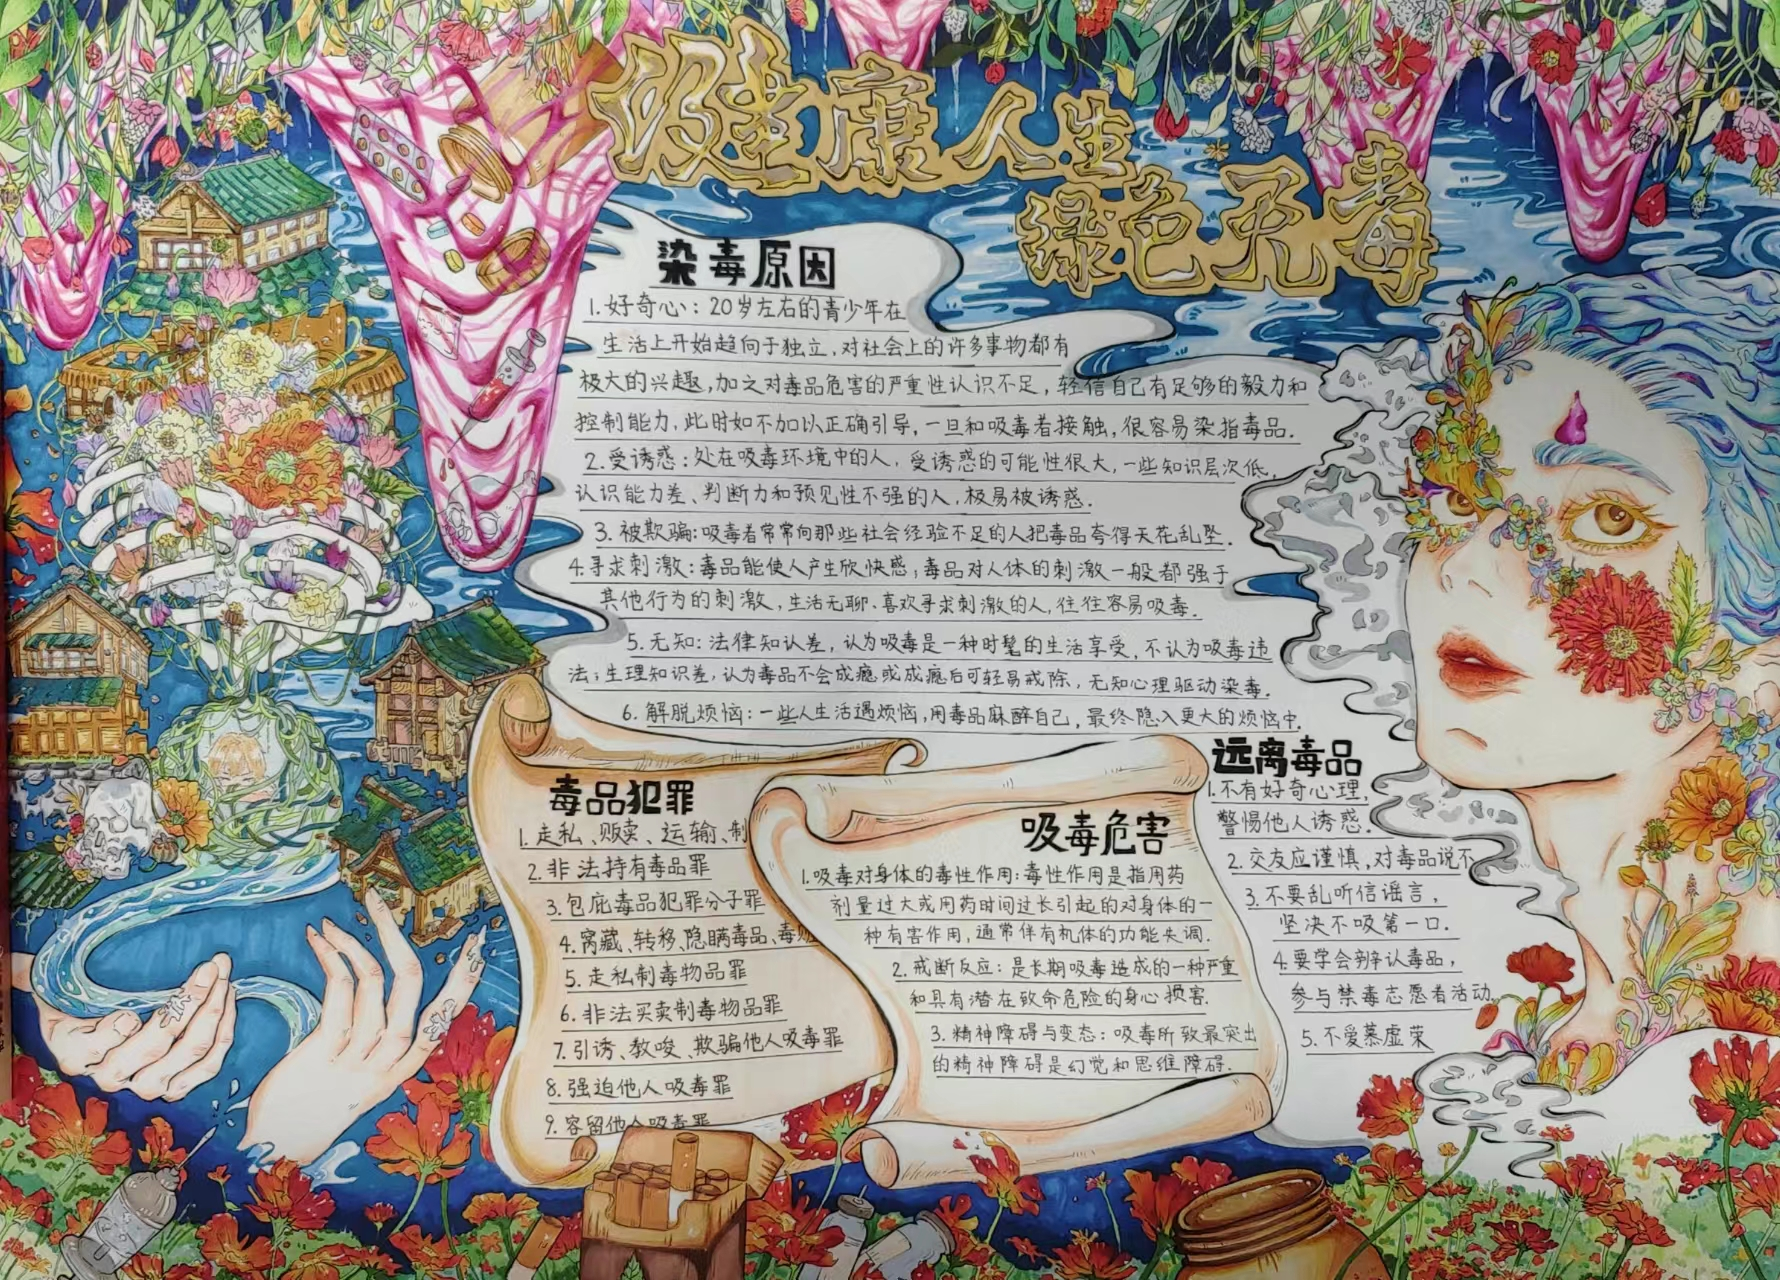 健康人生
绿色无毒
染毒原因
1.好奇心：20岁左右的青少年在
生活上开始趋向于独立，对社会上的许多事物都有
极大的兴趣，加之对毒品危害的严重性认识不足，轻信自己有足够的毅力和
控制能力，此时如不加以正确引导，一旦和吸毒者接触，很容易染指毒品.
2.受诱惑：处在吸毒环境中的人，受诱惑的可能性很大，一些知识层次低，
认识能力差、判断力和预见性不强的人，极易被诱惑.
3.被欺骗：吸毒者常常向那些社会经验不足的人把毒品夸得天花乱坠.
4.寻求刺激：毒品能使人产生欣快感，毒品对人体的刺激一般都强于
其他行为的刺激，生活无聊、喜欢寻求刺激的人，往往容易吸毒.
5.无知：法律知认差，认为吸毒是一种时髦的生活享受，不认为吸毒违
法；生理知识差，认为毒品不会成瘾或成瘾后可轻易戒除，无知心理驱动染毒.
6.解脱烦恼：一些人生活遇烦恼，用毒品麻醉自己，最终隐入更大的烦恼中.
毒品犯罪
1.走私、贩卖、运输、制
2.非法持有毒品罪
3.包庇毒品犯罪分子罪
4.窝藏、转移、隐瞒毒品、毒
5.走私制毒物品罪
6.非法买卖制毒物品罪
7.引诱、教唆、欺骗他人吸毒罪
8.强迫他人吸毒罪
9.容留他人吸毒罪
吸毒危害
1.吸毒对身体的毒性作用：毒性作用是指用药
剂量过大或用药时间过长引起的对身体的一
种有害作用，通常伴有机体的功能失调.
2.戒断反应：是长期吸毒造成的一种严重
和具有潜在致命危险的身心损害.
3.精神障碍与变态：吸毒所致最突出
的精神障碍是幻觉和思维障碍.
远离毒品
1.不有好奇心理，
警惕他人诱惑.
2.交友应谨慎，对毒品说不
3.不要乱听信谣言，
坚决不吸第一口.
4.要学会辨认毒品，
参与禁毒志愿者活动.
5.不爱慕虚荣